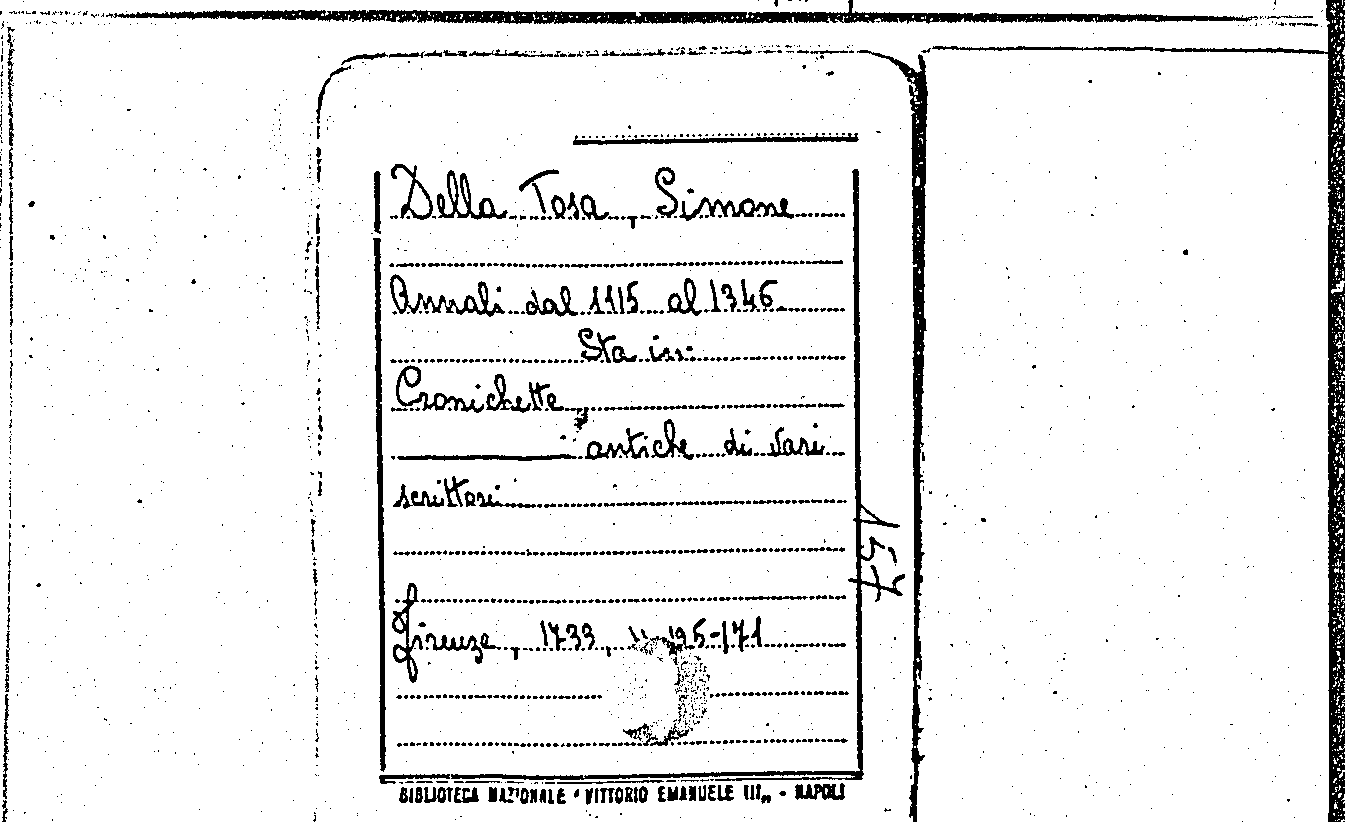 Della Tosa, Simone
Annali dal 1115 al 1346.
Sta in:
Cronichette
antiche di vari
scrittori
157
Firenze, 1733, 125-171
BIBLIOTECA NAZIONALE "VITTORIO EMANUELE III" - NAPOLI